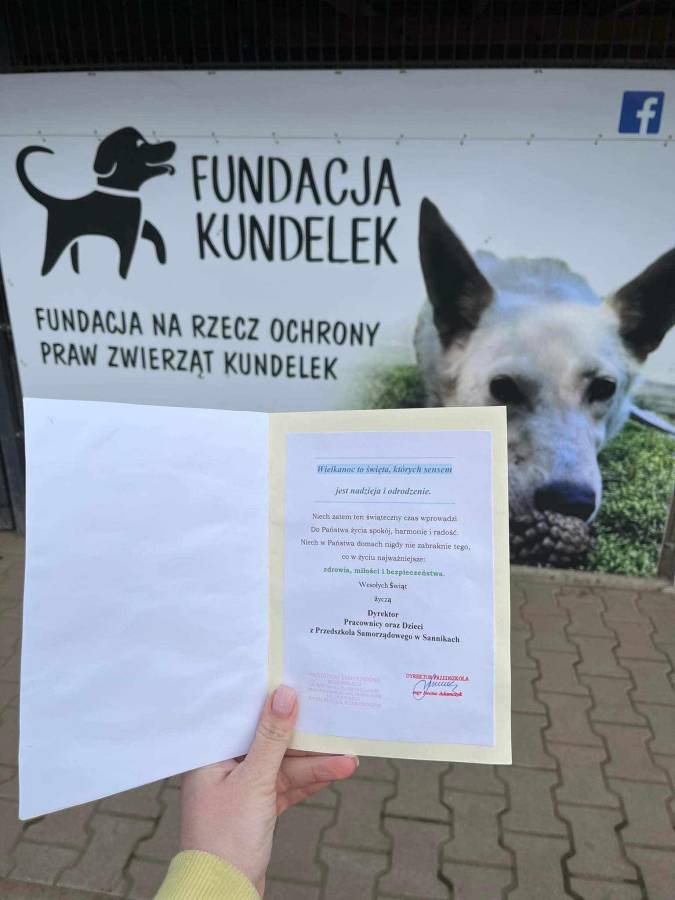 FUNDACJA
KUNDELEK
FUNDACJA NA RZECZ OCHRONY
PRAW ZWIERZĄT KUNDELEK
Wielkanoc to święta, których sensem
jest nadzieja i odrodzenie.
Niech zatem ten świąteczny czas wprowadzi
Do Państwa życia spokój, harmonię i radość.
Niech w Państwa domach nigdy nie zabraknie tego,
co w życiu najważniejsze:
zdrowia, miłości i bezpieczeństwa.
Wesołych Świąt
życzą
Dyrektor
Pracownicy oraz Dzieci
z Przedszkola Samorządowego w Sannikach
DYREKTOR PRZEDSZKOLA